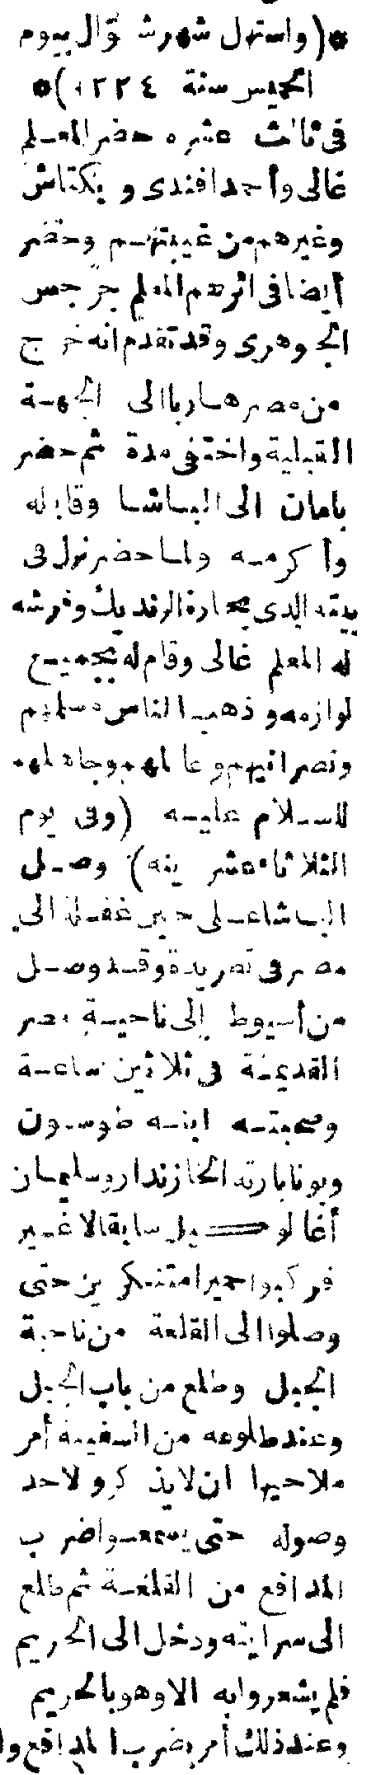 *(واستهل شهر شوّال بيوم
الخميس سنة ١٢٢٤)*
فى ثالث عشره حضر المعلم
غالى وأحمد افندى و بكتاش
وغيرهم من غيبتهم وحضر
أيضا فى اثرهم المعلم جرجس
الجوهرى وقد تقدم انه خرج
من مصر هاربا الى الجهة
القبلية واختفى مدة ثم حضر
بامان الى الباشا وقابله
وأكرمه ولما حضر نزل فى
بيته الذى بحارة الونديك وفرشه
له المعلم غالى وقام له بجميع
لوازمه وذهب الناس مسلمهم
ونصرانيهم وعالمهم وجاهلهم
للسلام عليه (وفى يوم
الثلاثاء عشرينه) وصل
الباشا على حين غفلة الى
مصر فى تطريدة وقد وصل
من أسيوط إلى ناحية مصر
القديمة فى ثلاثين ساعة
وصحبته ابنه طوسون
وبونابارته الخازندار وسليمان
أغا الوكيل سابقا لا غير
فركبوا حميرا متنكرين حتى
وصلوا الى القلعة من ناحية
الجبل وطلع من باب الجبل
وعند طلوعه من السفينة أمر
ملاحيها ان لا يذكروا لاحد
وصوله حتى يسمعوا ضرب
المدافع من القلعة ثم طلع
الى سرايته ودخل الى الحريم
فلم يشعروا به الا وهو بالحريم
وعند ذلك أمر بضرب المدافع وا